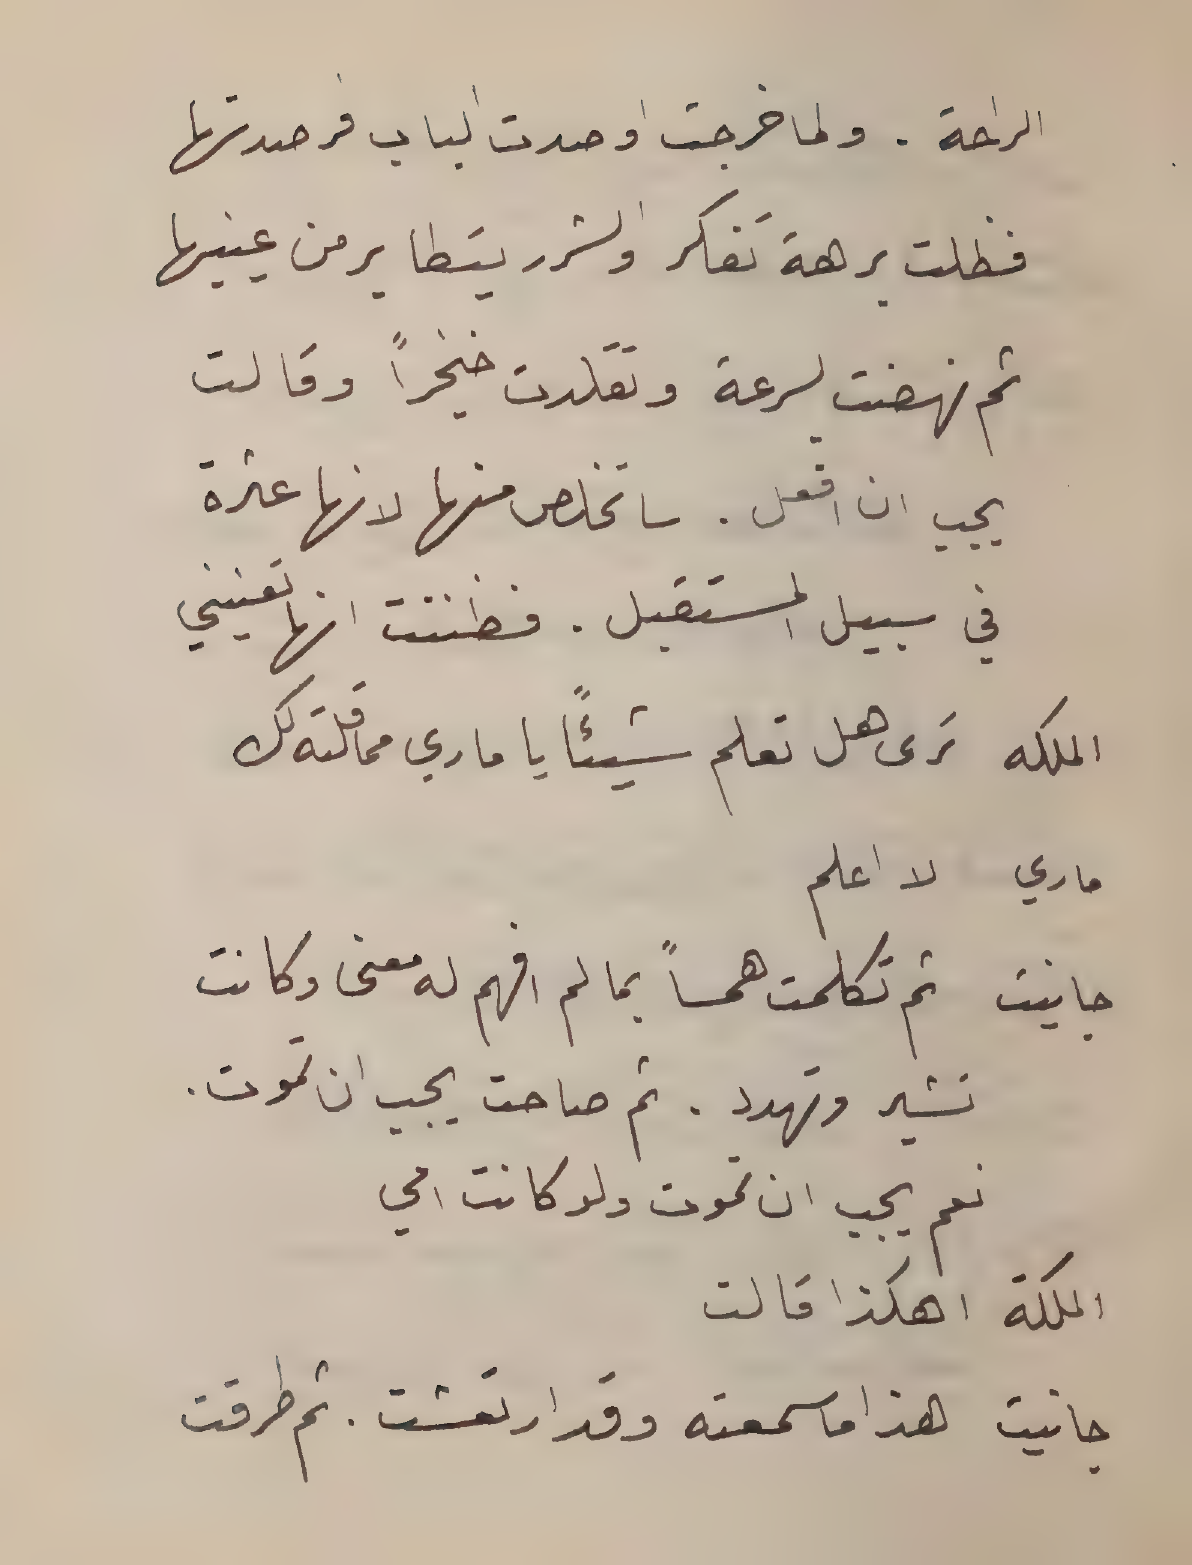 الراحة . ولما خرجت اوصدت الباب فرصدتها
فظلت برهة تفكر والشرر يتطاير من عينيها
ثم نهضت بسرعة وتقلدت خنجراً وقالت
يجب ان افعل . ساتخلص منها لانها عثرة
في سبيل المستقبل . فظننت انها تعنيني
الملكه ترى هل تعلم شيئاً يا ماري مما قلته لك
ماري لا اعلم
جانيت ثم تكلمت همساً بما لم افهم له معنى وكانت
تشير وتهدد . ثم صاحت يجب ان تموت .
نعم يجب ان تموت ولو كانت امي
الملكة اهكذا قالت
جانيت هذا ما سمعته وقد ارتعشت . ثم طرقت